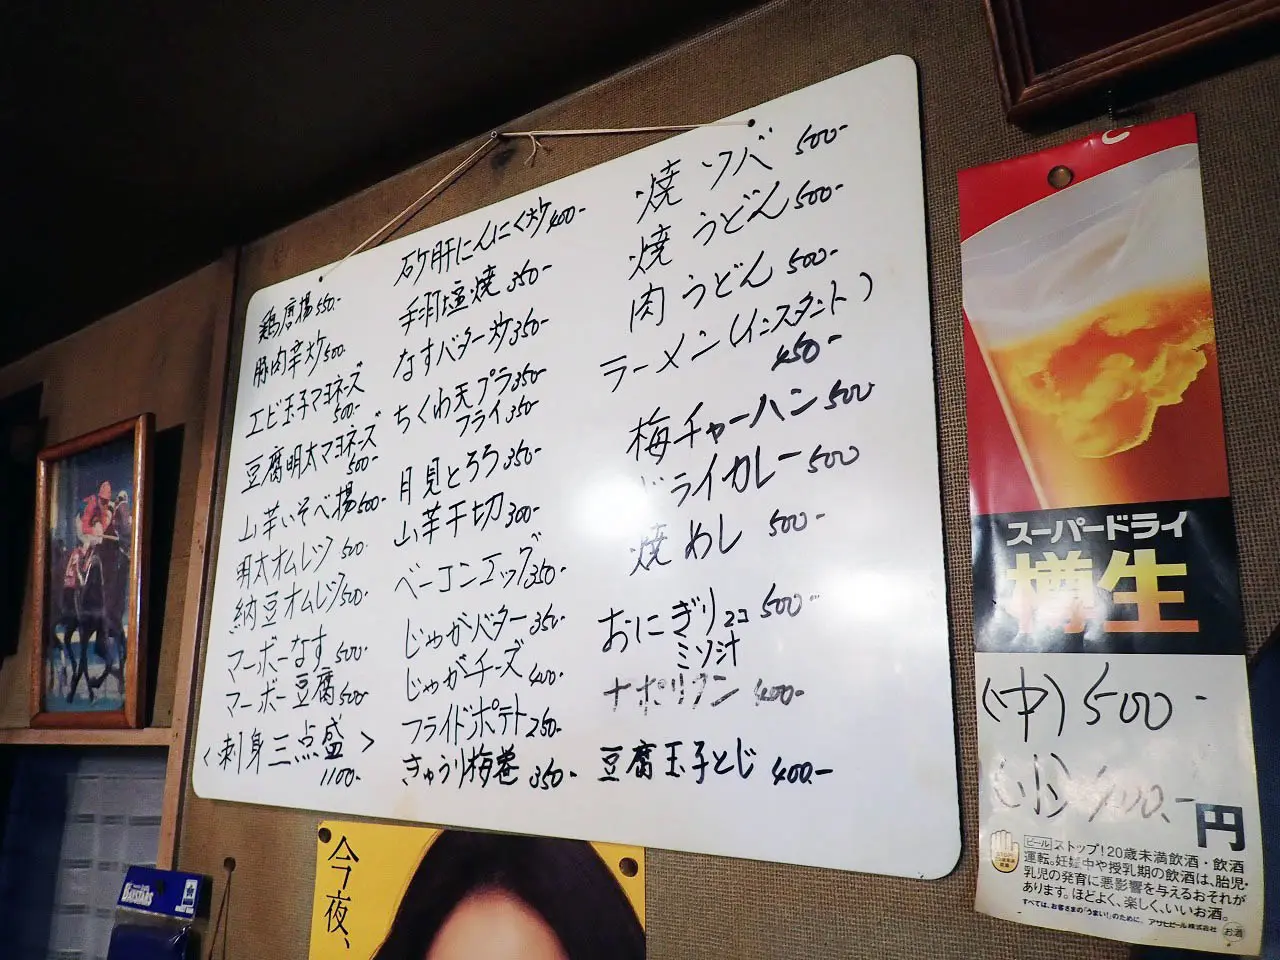 鶏唐揚550-
豚肉辛炒500
エビ玉子マヨネーズ
500-
豆腐明太マヨネーズ
500-
山芋いそべ揚500-
明太オムレツ500-
納豆オムレツ500-
マーボーなす500-
マーボー豆腐500-
<刺身三点盛>
1100-
砂肝にんにく炒400-
手羽塩焼350-
なすバター炒350-
ちくわ天プラ350-
フライ350-
月見とろろ350-
山芋千切300-
ベーコンエッグ350-
じゃがバター350-
じゃがチーズ400-
フライドポテト250-
きゅうり梅巻350-
焼ソバ500-
焼うどん500-
肉うどん500-
ラーメン(インスタント)
450-
梅チャーハン500
ドライカレー500
焼めし500-
おにぎり2コ500-
ミソ汁
ナポリタン400-
豆腐玉子とじ400-
スーパードライ
樽生
(中)500-
(小)400-
円
ビール ストップ!20歳未満飲酒・飲酒
運転。妊娠中や授乳期の飲酒は、胎児・
乳児の発育に悪影響を与えるおそれが
あります。ほどよく、楽しく、いいお酒。
すべては、お客さまの「うまい!」のために。アサヒビール株式会社 お酒
今夜、
BAYSTARS